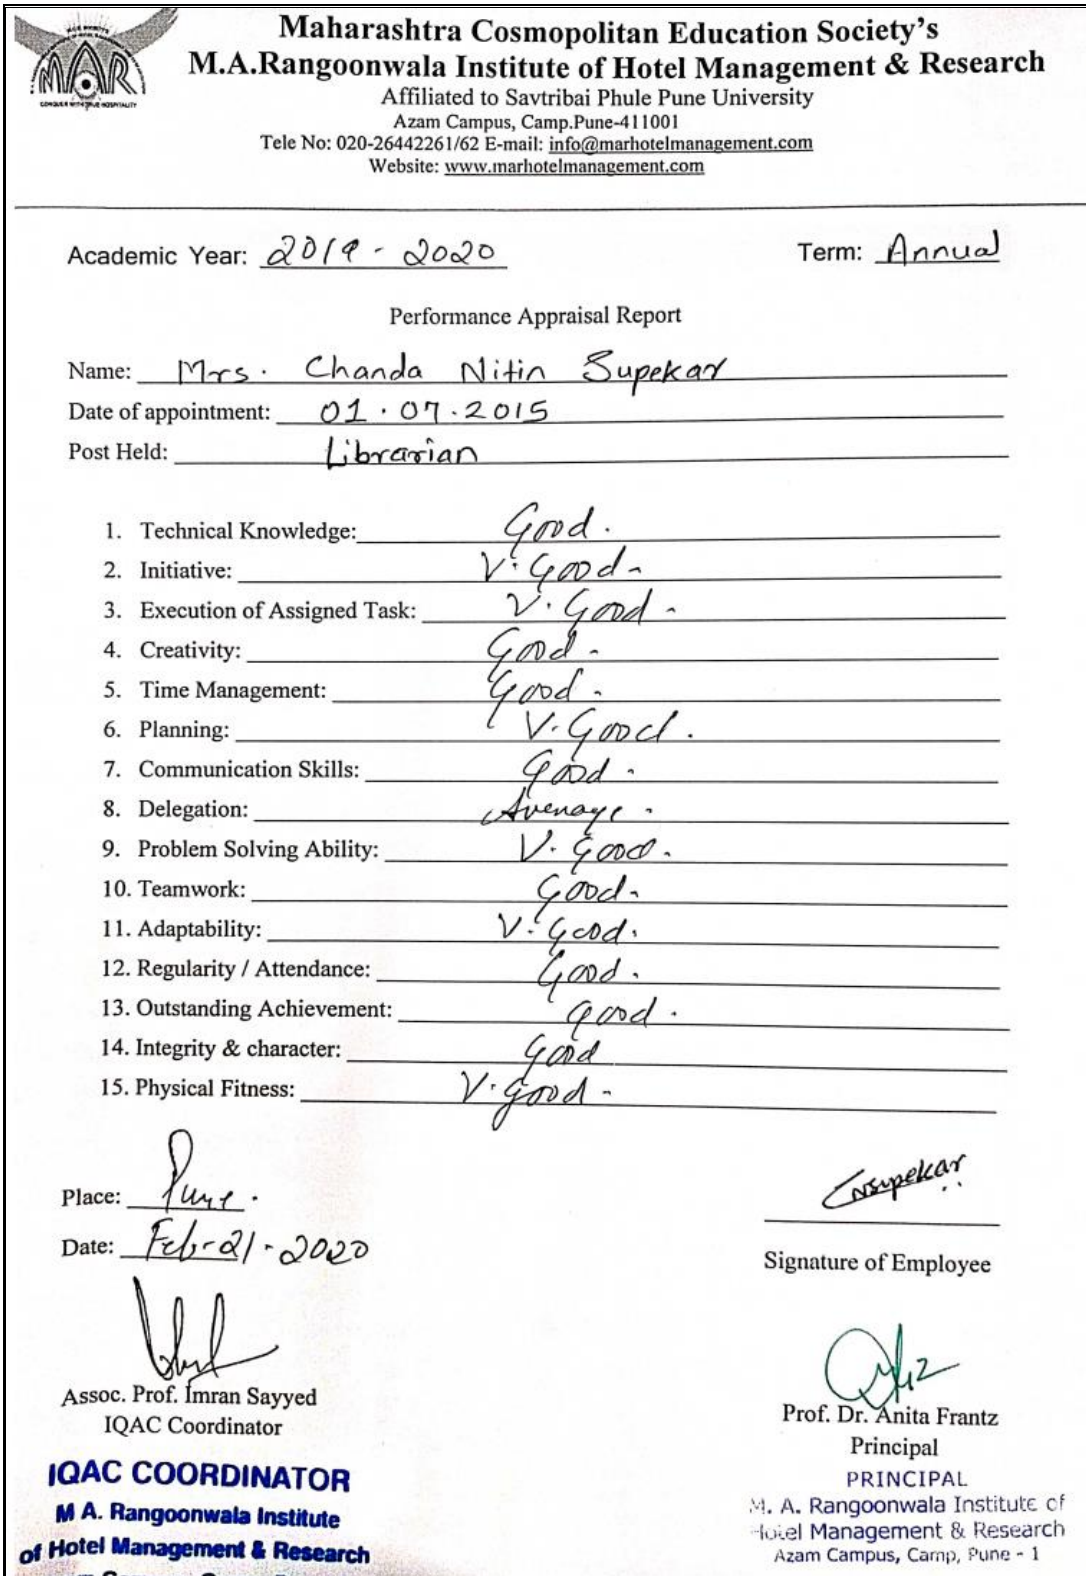 MAR
CONQUER WITH TRUE HOSPITALITY
Maharashtra Cosmopolitan Education Society's
M.A.Rangoonwala Institute of Hotel Management & Research
Affiliated to Savtribai Phule Pune University
Azam Campus, Camp.Pune-411001
Tele No: 020-26442261/62 E-mail: info@marhotelmanagement.com
Website: www.marhotelmanagement.com
Academic Year: 2019 - 2020 Term: Annual
Performance Appraisal Report
Name: Mrs. Chanda Nitin Supekar
Date of appointment: 01.07.2015
Post Held: Librarian
1. Technical Knowledge: Good.
2. Initiative: V. Good
3. Execution of Assigned Task: V. Good
4. Creativity: Good
5. Time Management: Good
6. Planning: V. Good.
7. Communication Skills: Good
8. Delegation: Average
9. Problem Solving Ability: V. Good.
10. Teamwork: Good
11. Adaptability: V. Good.
12. Regularity / Attendance: Good.
13. Outstanding Achievement: Good.
14. Integrity & character: Good
15. Physical Fitness: V. Good
Place: Pune.
Date: Feb-21-2020
CNSupekar
Signature of Employee
Assoc. Prof. Imran Sayyed
IQAC Coordinator
IQAC COORDINATOR
M A. Rangoonwala Institute
of Hotel Management & Research
Prof. Dr. Anita Frantz
Principal
PRINCIPAL
M. A. Rangoonwala Institute of
Hotel Management & Research
Azam Campus, Camp, Pune - 1